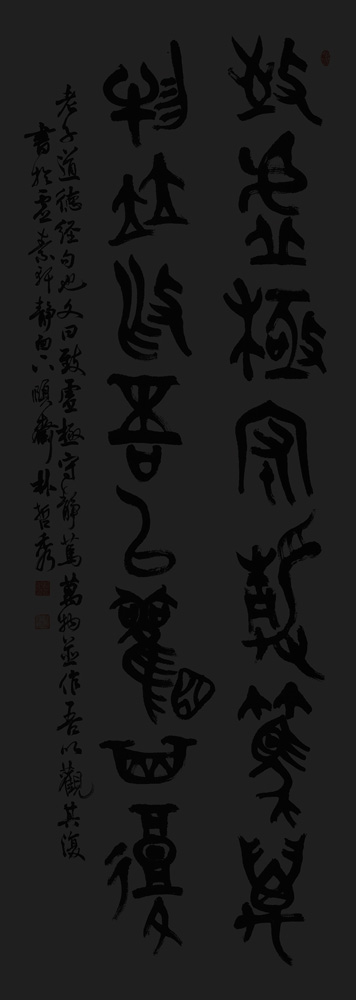 致虛極守靜篤萬
物並作吾以觀其復
老子道德經句也文曰致虛極守靜篤萬物並作吾以觀其復
書於虛素軒靜頤齋林哲秀